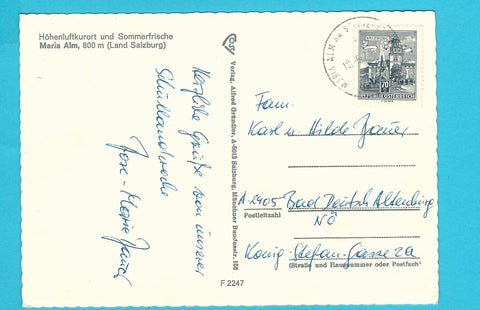 Höhenluftkurort und Sommerfrische
Maria Alm, 800 m (Land Salzburg)
Herzliche Grüße von unserer
Schullandwoche
Cosy Verlag, Alfred Gründler, A-5015 Salzburg, Münchner Bundesstr. 156
F 2247
MARIA ALM AM
REPUBLIK ÖSTERREICH
70
Fam.
Karl u. Hilde
A-2405 Bad Deutsch Altenburg
Postleitzahl
NÖ
König-Stefan-Gasse 2a
(Straße und Hausnummer oder Postfach)